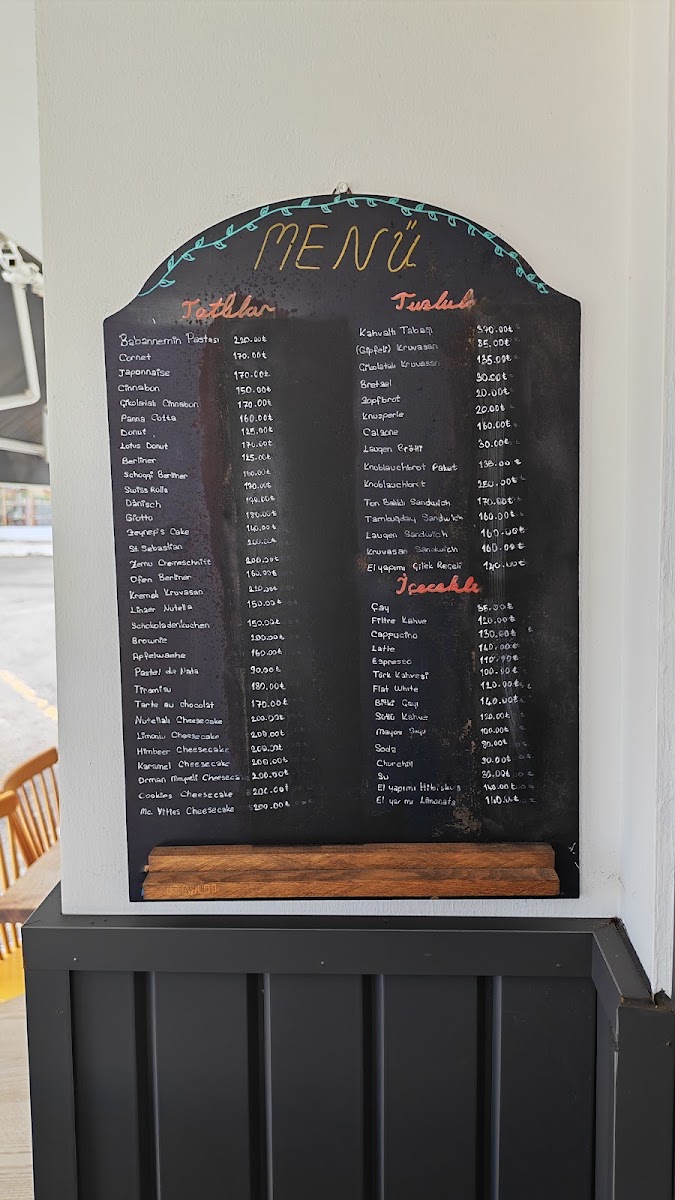 MENÜ
Tatlılar
Babannemin Pastası 220.00₺
Cornet 170.00₺
Japonnaise 170.00₺
Cinnabon 150.00₺
Çikolatalı Cinnabon 170.00₺
Panna Cotta 160.00₺
Donut 125.00₺
Lotus Donut 170.00₺
Berliner 125.00₺
Schoggi Berliner
Swiss Rolls
Dänisch
Giotto 180.00₺
Zeynep's Cake
St Sebastian 200.00₺
Cremeschnitt 200.00₺
Ofen Berliner 160.00₺
Kremalı Kruvasan
Linzer Nutella 150.00₺
Schokoladenkuchen 150.00₺
Brownie 200.00₺
Apfelwähe 160.00₺
Pastel de Nata 90.00₺
Tiramisu 180.00₺
Tarte au chocolat 170.00₺
Nutellalı Cheesecake 200.00₺
Limonlu Cheesecake 200.00₺
Himbeer Cheesecake 200.00₺
Karamel Cheesecake 200.00₺
Orman Meyveli Cheeseca 200.00₺
Cookies Cheesecake 200.00₺
Mc. Vities Cheesecake 200.00₺
Tuzlular
Kahvaltı Tabağı 370.00₺
(Gipfeli) Kruvasan 85.00₺
Çikolatalı Kruvasan 135.00₺
Bretzel 30.00₺
Zopfbrot 20.00₺
Knusperle 20.00₺
Calzone 160.00₺
Laugen Brötli 30.00₺
Knoblauchbrot Paket
Knoblauchbrot 250.00₺
Ton Balıklı Sandwich 170.00₺
Tambuğday Sandwich 160.00₺
Laugen Sandwich 160.00₺
Kruvasan Sandwich 160.00₺
El yapımı Çilek Reçeli
İçecekler
Çay
Filtre Kahve 120.00₺
Cappucino 130.00₺
Latte 140.00₺
Espresso 110.00₺
Türk Kahvesi 100.00₺
Flat White 120.00₺
Bitki Çayı 140.00₺
Sütlü Kahve 120.00₺
100.00₺
Soda 80.00₺
Churchill 90.00₺
Su
El yapımı Hibiskus
El yapımı Limonata